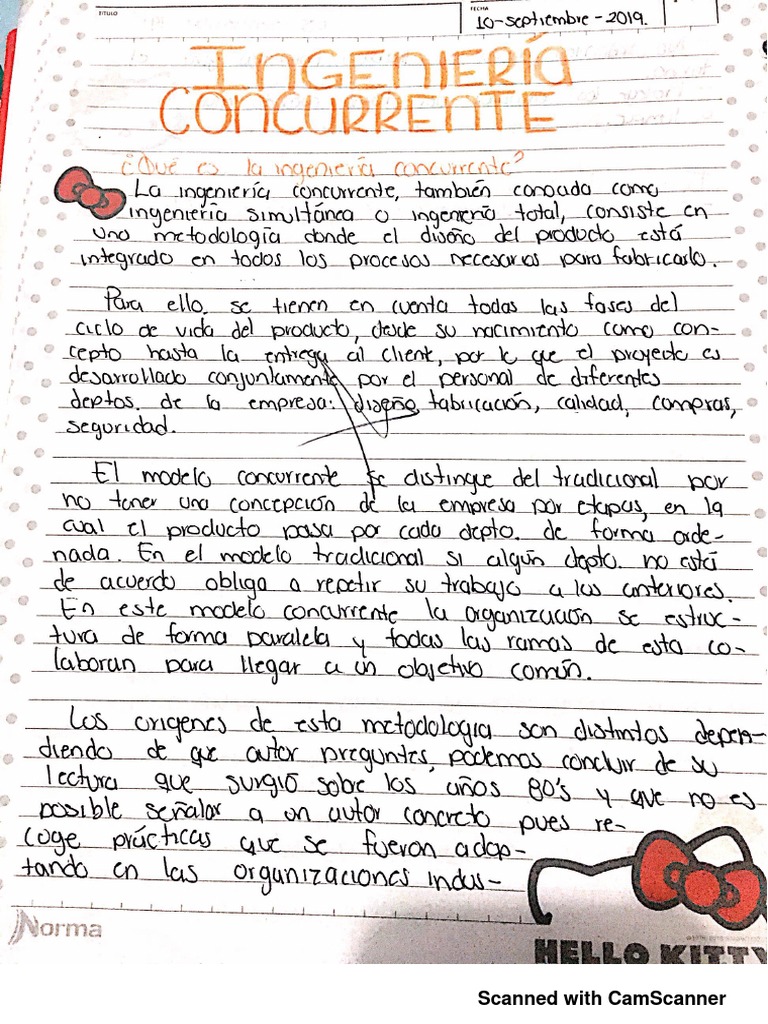 TITULO
FECHA
10-septiembre-2019.
INGENIERÍA
CONCURRENTE
¿Qué es la ingeniería concurrente?
La ingeniería concurrente, también conocida como
ingeniería simultánea o ingeniería total, consiste en
una metodología donde el diseño del producto está
integrado en todos los procesos necesarios para fabricarlo.
Para ello, se tienen en cuenta todas las fases del
ciclo de vida del producto, desde su nacimiento como con-
cepto hasta la entrega al client, por lo que el proyecto es
desarrollado conjuntamente por el personal de diferentes
deptos. de la empresa: diseño, fabricación, calidad, compras,
seguridad.
El modelo concurrente se distingue del tradicional por
no tener una concepción de la empresa por etapas, en la
cual el producto pasa por cada depto. de forma orde-
nada. En el modelo tradicional si algún depto. no está
de acuerdo obliga a repetir su trabajo a los anteriores.
En este modelo concurrente la organización se estruc-
tura de forma paralela y todas las ramas de esta co-
laboran para llegar a un objetivo común.
Los orígenes de esta metodología son distintos depen-
diendo de que autor preguntes, podemos concluir de su
lectura que surgió sobre los años 80's y que no es
posible señalar a un autor concreto pues re-
coge prácticas que se fueron adap-
tando en las organizaciones indus-
Norma
HELLO KITTY
Scanned with CamScanner